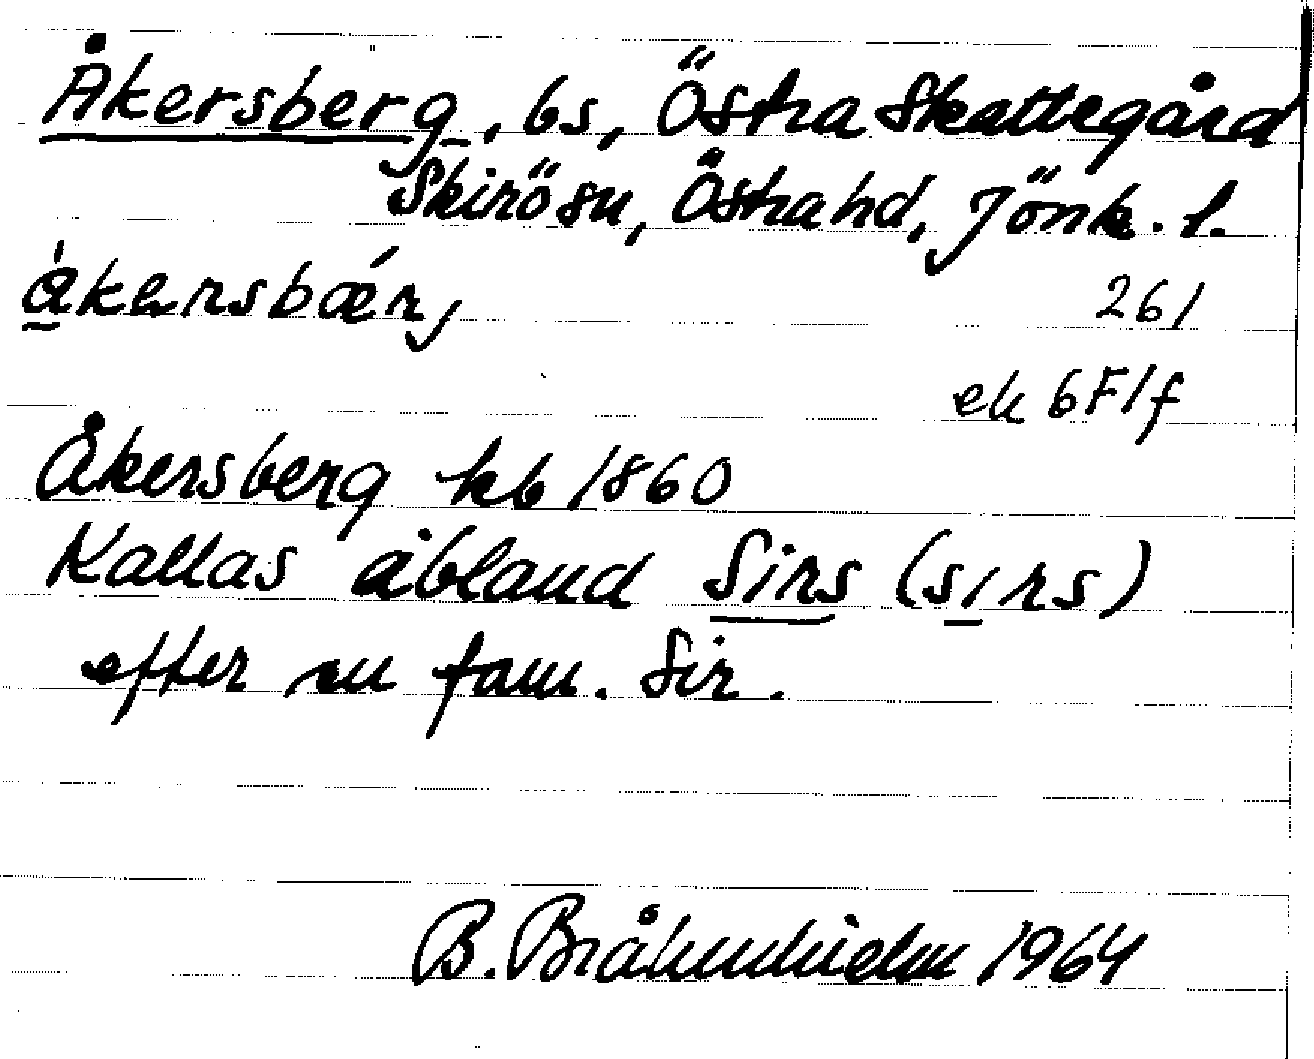 Åkersberg, bs, Östra Skattegård
Skirö sn, Östra hd, Jönk. l.
åkersbǽrj
261
ek 6F1f
Åkersberg kb 1860
Kallas åbland Sirs (sırs)
efter en fam. Sir.
B. 1964